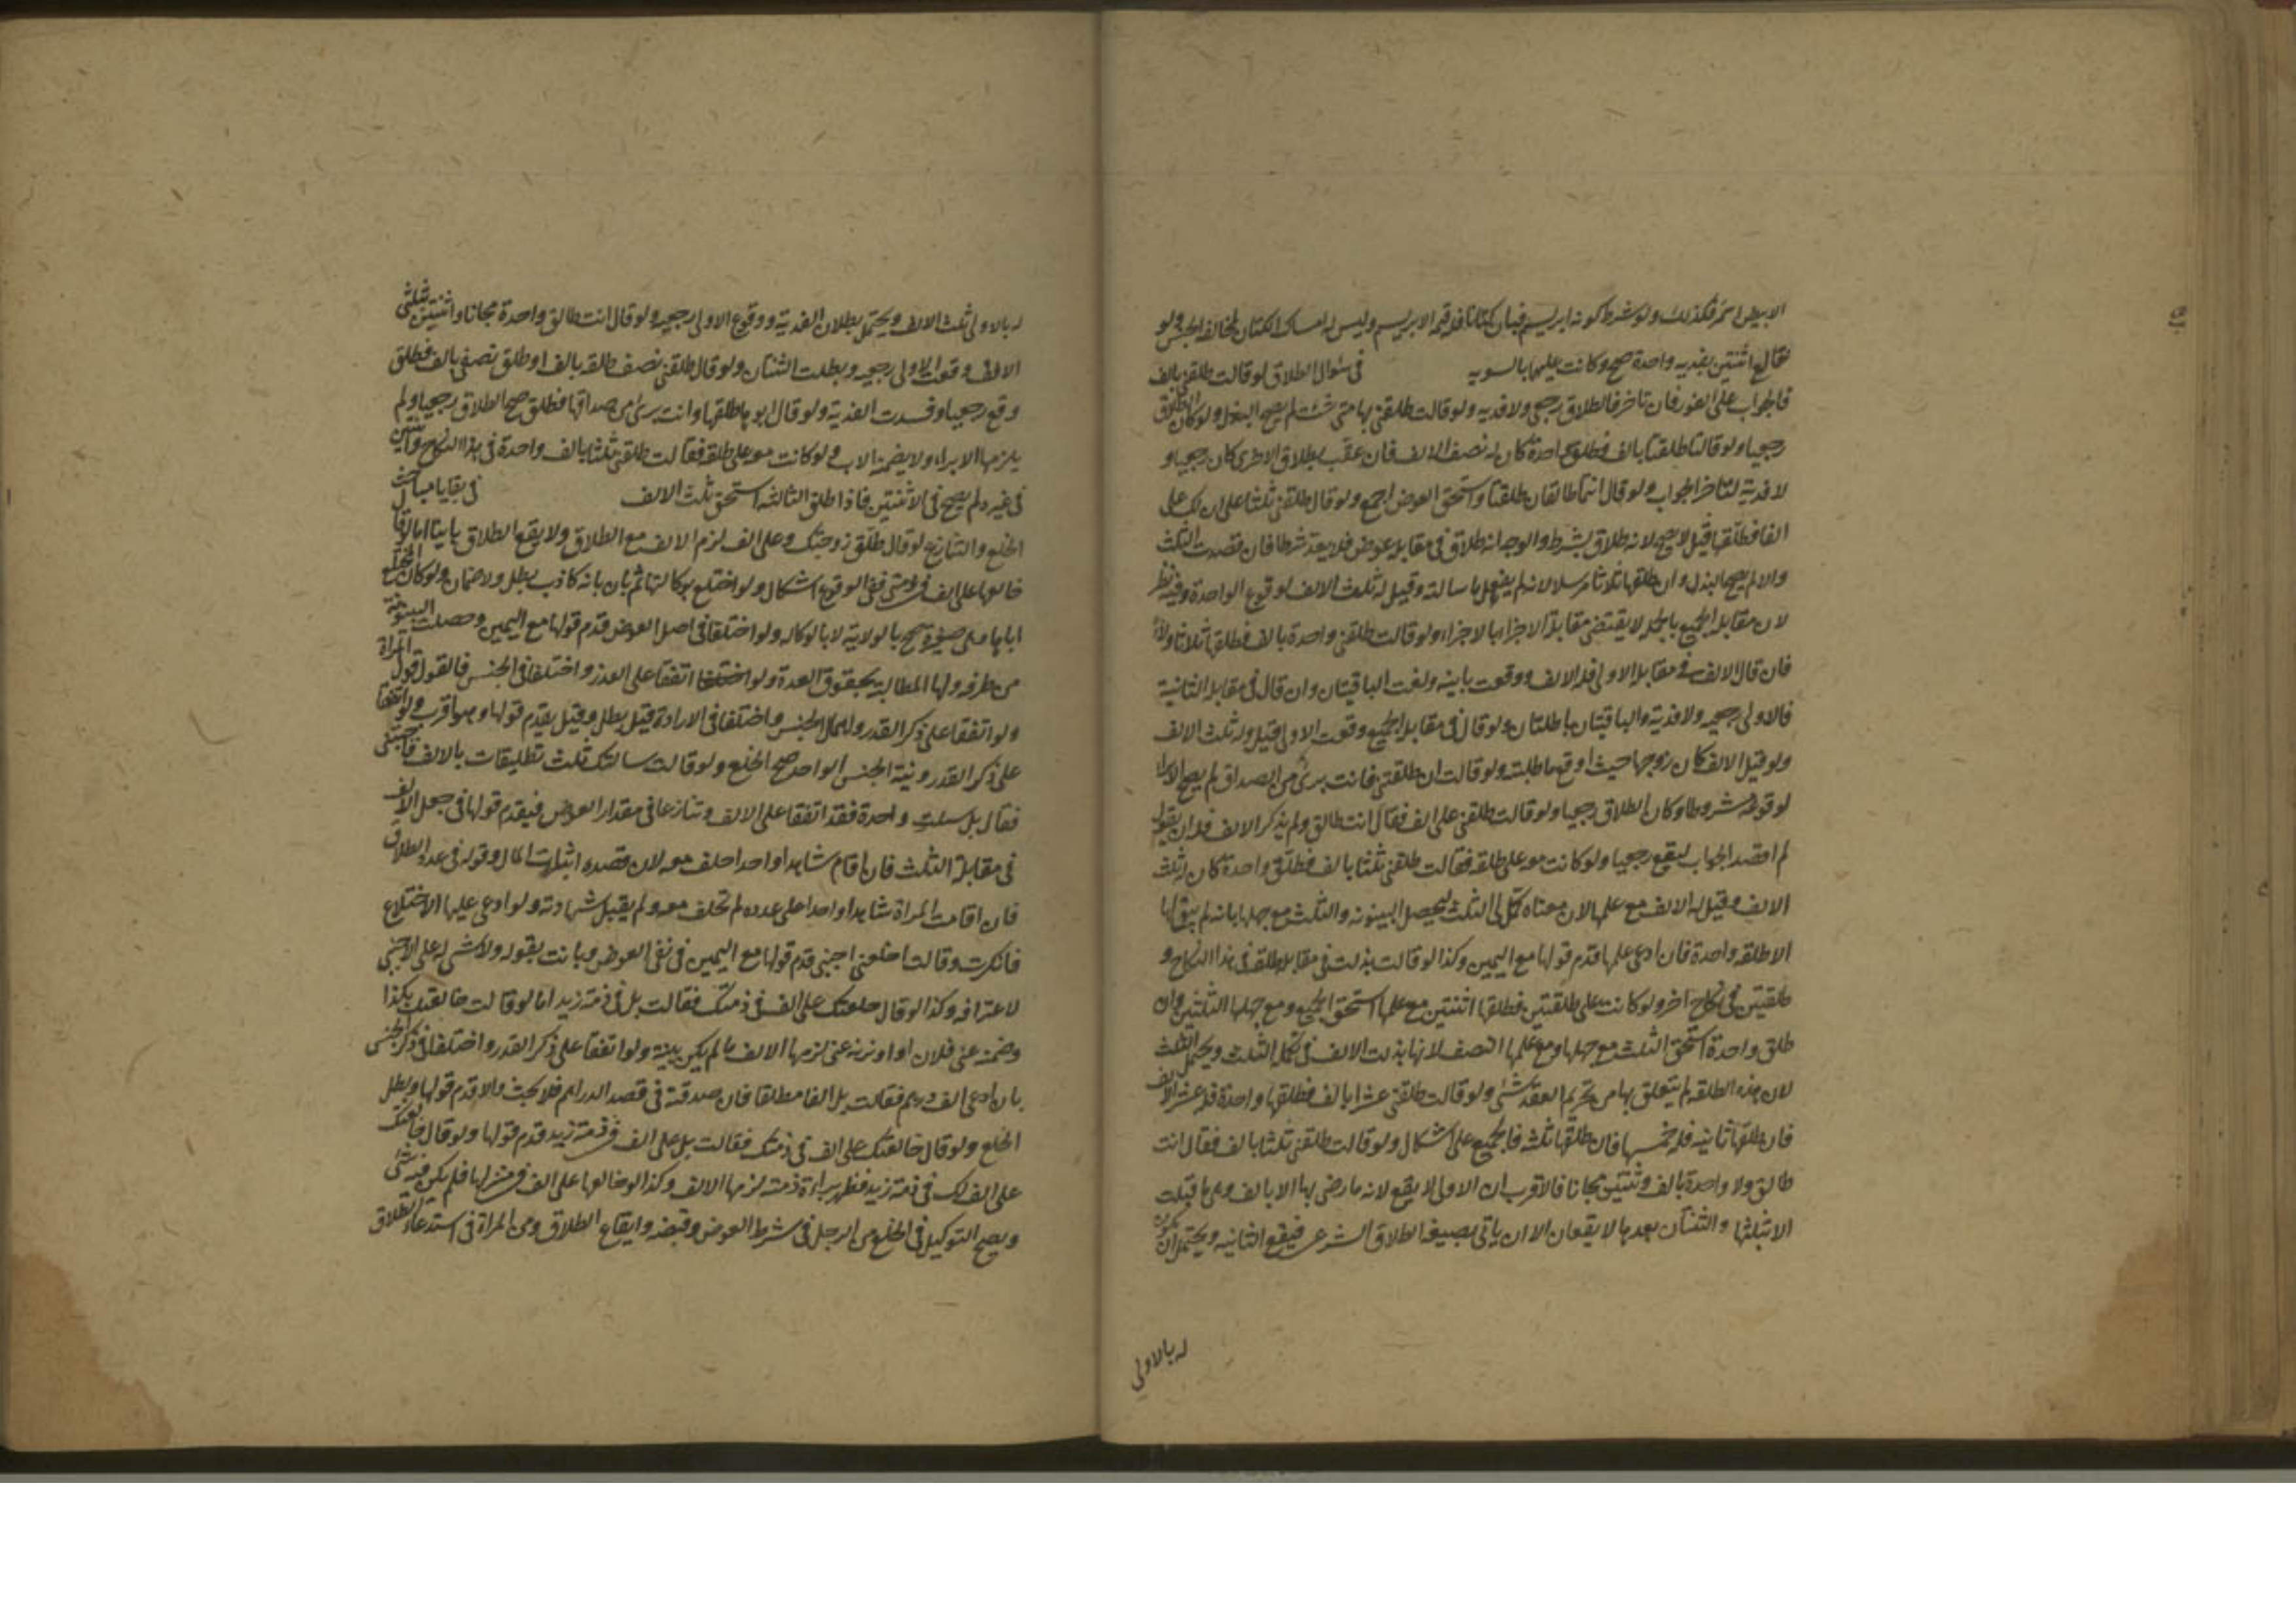 الابيض اسمر فكذلك ولو شرط كونه ابريسم فبان كتانا فله قيمة الابريسم وليس له امساك الكتان لمخالفة الجنس ولو
خالع اثنتين بفديه واحدة صح وكانت عليهما بالسويه في سؤال الطلاق لو قالت طلقني بالف
فالجواب على الفور فان تاخر فالطلاق رجعي ولا فديه ولو قالت طلقني بها متى شئت لم يصح البذل ولو كان الطلاق
رجعيا ولو قالتا طلقنا بالف فطلق واحدة كان له نصف الالف فان عقب بطلاق الاخرى كان رجعيا و
لا فدية لتاخر الجواب ولو قال انتما طالقان طلقتا واستحق العوض اجمع ولو قال طلقني ثلثا على ان لك على
الفا فطلقها قيل لا يصح لانه طلاق بشرط والوجه انه طلاق في مقابلة عوض فلا يعد شرطا فان قصدت الثلث
والا لم يصح البذل وان طلقها ثلاثا مرسلا لانه لم يفعل ما سالته وقيل له ثلث الالف لوقوع الواحدة وفيه نظر
لان مقابلة الجميع بالجملة لا يقتضى مقابلة الاجزاء بالاجزاء ولو قالت طلقني واحدة بالف فطلقها ثلاثا ولاء
فان قال الالف في مقابلة الاولى فله الالف ووقعت باينه ولغت الباقيتان وان قال في مقابلة الثانية
فالاولى رجعيه ولا فدية والباقيتان باطلتان ولو قال في مقابلة الجميع وقعت الاولى قيل وله ثلث الالف
ولو قيل الالف كان وجها حيث اوقع ما طلبته ولو قالت ان طلقتني فانت برئ من الصداق لم يصح الابرا
لوقوعه مشروطا وكان الطلاق رجعيا ولو قالت طلقني على الف فقال انت طالق ولم يذكر الالف فله ان يقول
لم اقصد الجواب ليقع رجعيا ولو كانت معه على طلقه فقالت طلقني ثلثا بالف فطلق واحدة كان له ثلث
الالف وقيل له الالف مع علمها لان معناه كمل لي الثلث ليحصل البينونه والثلث مع جهلها بانه لم يبق لها
الا طلقه واحدة فان ادعى علمها قدم قولها مع اليمين وكذا لو قالت بذلت في مقابلة طلقه في هذا النكاح و
طلقتين في نكاح اخر ولو كانت على طلقتين فطلقها اثنتين مع علمها استحق الجميع ومع جهلها الثلثين وان
طلق واحدة استحق الثلث مع جهلها ومع علمها النصف لانها بذلت الالف في تكملة الثلث ويحتمل الثلث
لان هذه الطلقه لم يتعلق بها من تحريم العقد شئ ولو قالت طلقني عشرا بالف فطلقها واحدة فله عشر الالف
فان طلقها ثانيه فله خمسها فان طلقها ثلثه فالجميع على اشكال ولو قالت طلقني ثلثا بالف فقال انت
طالق ولا واحدة بالف وثنتين مجانا فالاقرب ان الاولى لا يقع لانه ما رضى بها الا بالف وهى ما قبلت
الا بثلثها والثنتان بعدها لا يقعان الا ان ياتي بصيغة الطلاق الشرعي فيقع الثانيه ويحتمل ان يكون
له بالاولى
له بالاولى ثلث الالف ويحتمل بطلان الفدية ووقوع الاولى رجعيه ولو قال انت طالق واحدة مجانا واثنتين بثلثي
الالف وقعت الاولى رجعيه وبطلت الثنتان ولو قال طلقني نصف طلقه بالف او طلق نصفي بالف فطلق
وقع رجعيا وفسدت الفدية ولو قال ابوها طلقها وانت برئ من صداقها فطلق صح الطلاق رجعيا ولم
يلزمها الابراء ولا يضمنه الاب ولو كانت معه على طلقه فقالت طلقني ثلثا بالف واحدة في هذا النكاح واثنتين
في غيره لم يصح في الاثنتين فاذا طلق الثالثه استحق ثلث الالف في بقايا مباحث
الخلع والتنازع لو قال طلق زوجتك وعلى الف لزم الالف مع الطلاق ولا يقع الطلاق باينا اما لو قال
خالعها على الف في ذمتي ففي الوقوع اشكال ولو اختلع بوكالتها ثم بان بانه كاذب بطل ولا ضمان ولو كان المختلع
اباها وهى صغيرة صح بالولاية لا بالوكاله ولو اختلفا في اصل العوض قدم قولها مع اليمين وحصلت البينونه
من طرفه ولها المطالبة بحقوق العدة ولو اتفقا على القدر واختلفا في الجنس فالقول قول المراة
ولو اتفقا على ذكر القدر واهملا الجنس واختلفا في الارادة قيل يبطل وقيل يقدم قولها وهو اقرب ولو اتفقا
على ذكر القدر ونية الجنس الواحد صح الخلع ولو قالت سالتك ثلث تطليقات بالالف فاجبتني
فقال بل سالت واحدة فقد اتفقا على الالف وتنازعا في مقدار العوض فيقدم قولها في جعل الالف
في مقابلة الثلث فان اقام شاهدا واحدا حلف معه لان قصده اثبات المال وقوله في عدد الطلاق
فان اقامت المراة شاهدا واحدا على عدده لم تحلف معه ولم يقبل شهادته ولو ادعى عليها الاختلاع
فانكرت وقالت اختلعني اجنبي قدم قولها مع اليمين في نفى العوض وبانت بقوله ولا شئ له على الاجنبي
لاعترافه وكذا لو قال خلعتك على الف في ذمتك فقالت بل في ذمة زيد اما لو قالت خالعتك بكذا
وضمنه عني فلان او يزنه عني لزمها الالف ما لم يكن بينة ولو اتفقا على ذكر القدر واختلفا في ذكر الجنس
بان ادعى الف درهم فقالت بل الفا مطلقا فان صدقته في قصد الدراهم فلا بحث والا قدم قولها وبطل
الخلع ولو قال خالعتك على الف في ذمتك فقالت بل على الف في ذمة زيد قدم قولها ولو قال خالعتك
على الف لك في ذمة زيد فظهر براءة ذمته لزمها الالف وكذا لو خالعها على الف في منزلها فلم يكن فيه شئ
ويصح التوكيل في الخلع من الرجل في شرط العوض وقبضه وايقاع الطلاق ومن المراة في استدعاء الطلاق